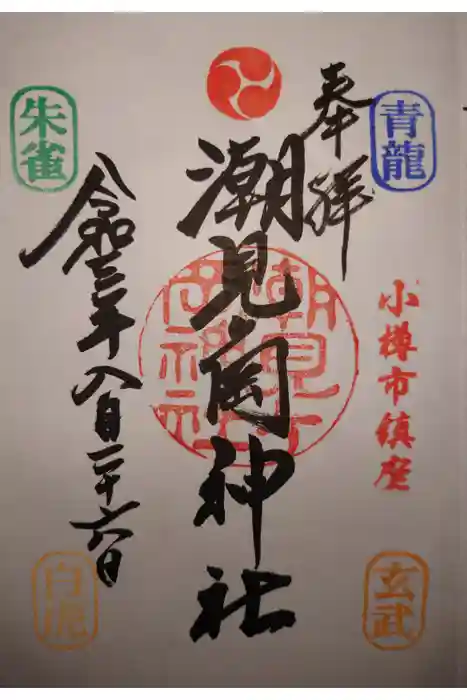 青龍
奉拝
小樽市鎮座
潮見岡神社
潮見岡神社
朱雀
令和三年八月二十六日
白虎
玄武